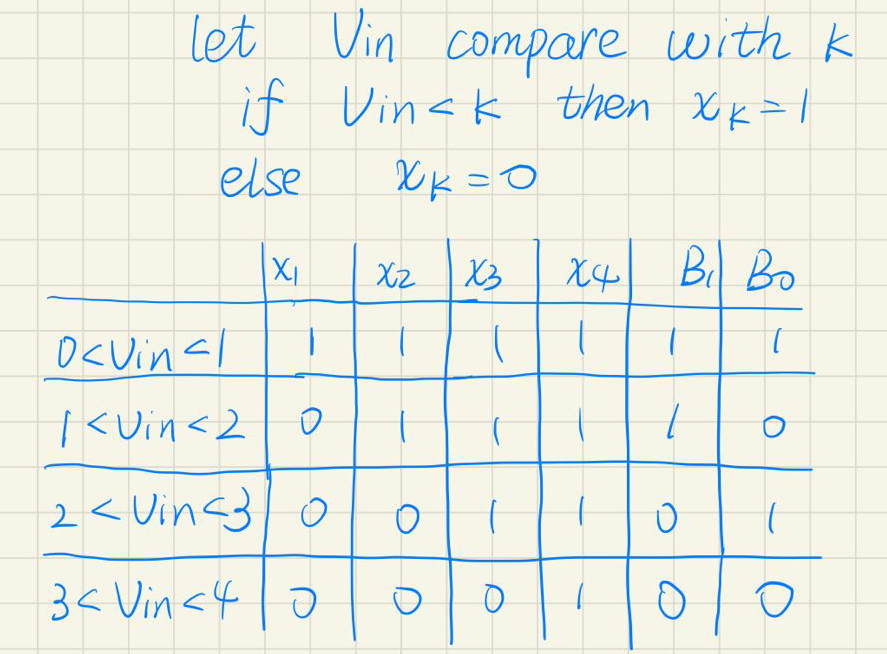 let Vin compare with k
if Vin < k then x_k = 1
else x_k = 0
x1 x2 x3 x4 B1 B0
0 < Vin < 1 1 1 1 1 1 1
1 < Vin < 2 0 1 1 1 1 0
2 < Vin < 3 0 0 1 1 0 1
3 < Vin < 4 0 0 0 1 0 0